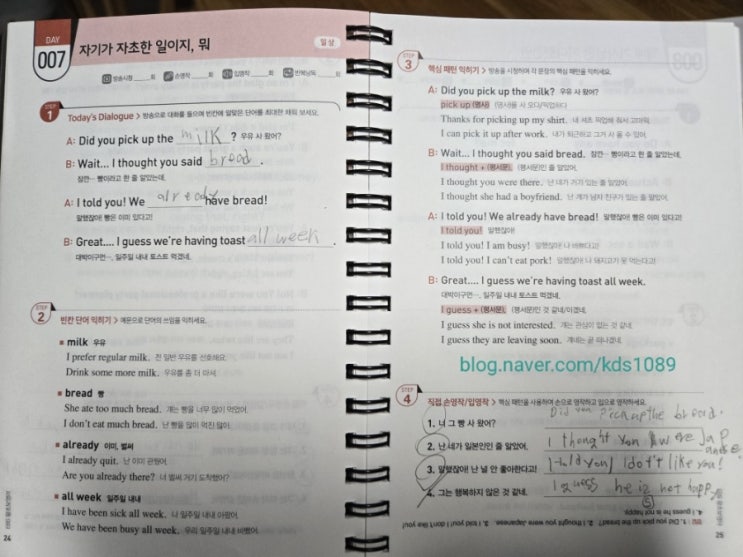 DAY
007
자기가 자초한 일이지, 뭐
일상
방송시청 ____회 손영작 ____회 입영작 ____회 반복낭독 ____회
STEP 1
Today's Dialogue > 방송으로 대화를 들으며 빈칸에 알맞은 단어를 최대한 채워 보세요.
A: Did you pick up the milk ? 우유 사 왔어?
B: Wait... I thought you said bread.
잠깐… 빵이라고 한 줄 알았는데.
A: I told you! We already have bread!
말했잖아! 빵은 이미 있다고!
B: Great.... I guess we're having toast all week.
대박이구먼…. 일주일 내내 토스트 먹겠네.
STEP 2
빈칸 단어 익히기 > 예문으로 단어의 쓰임을 익히세요.
milk 우유
I prefer regular milk. 전 일반 우유를 선호해요.
Drink some more milk. 우유를 좀 더 마셔.
bread 빵
She ate too much bread. 걔는 빵을 너무 많이 먹었어.
I don't eat much bread. 난 빵을 많이 먹진 않아.
already 이미, 벌써
I already quit. 난 이미 관뒀어.
Are you already there? 너 벌써 거기 도착했어?
all week 일주일 내내
I have been sick all week. 나 일주일 내내 아팠어.
We have been busy all week. 우리 일주일 내내 바빴어.
24
STEP 3
핵심 패턴 익히기 > 방송을 시청하며 각 문장의 핵심 패턴을 익히세요.
A: Did you pick up the milk? 우유 사 왔어?
pick up (명사) (명사)를 사 오다/픽업하다
Thanks for picking up my shirt. 내 셔츠 픽업해 줘서 고마워.
I can pick it up after work. 내가 퇴근하고 그거 사 올 수 있어.
B: Wait... I thought you said bread. 잠깐… 빵이라고 한 줄 알았는데.
I thought + (평서문). (평서문)인 줄 알았어.
I thought you were there. 난 네가 거기 있는 줄 알았어.
I thought she had a boyfriend. 난 걔가 남자 친구가 있는 줄 알았어.
A: I told you! We already have bread! 말했잖아! 빵은 이미 있다고!
I told you! 말했잖아!
I told you! I am busy! 말했잖아! 나 바쁘다고!
I told you! I can't eat pork! 말했잖아! 나 돼지고기 못 먹는다고!
B: Great.... I guess we're having toast all week.
대박이구먼…. 일주일 내내 토스트 먹겠네.
I guess + (평서문). (평서문)인 것 같네/이겠네.
I guess she is not interested. 걔는 관심이 없는 것 같네.
I guess they are leaving soon. 걔네는 곧 떠나겠네.
blog.naver.com/kds1089
STEP 4
직접 손영작/입영작 > 핵심 패턴을 사용하여 손으로 영작하고 입으로 영작하세요.
1. 너 그 빵 사 왔어? Did you pick up the bread.
2. 난 네가 일본인인 줄 알았어. I thought you were Japanese.
3. 말했잖아! 난 널 안 좋아한다고! I told you! I don't like you!
4. 그는 행복하지 않은 것 같네. I guess he is not happy
1. Did you pick up the bread? 2. I thought you were Japanese. 3. I told you! I don't like you!
4. I guess he is not happy.
25